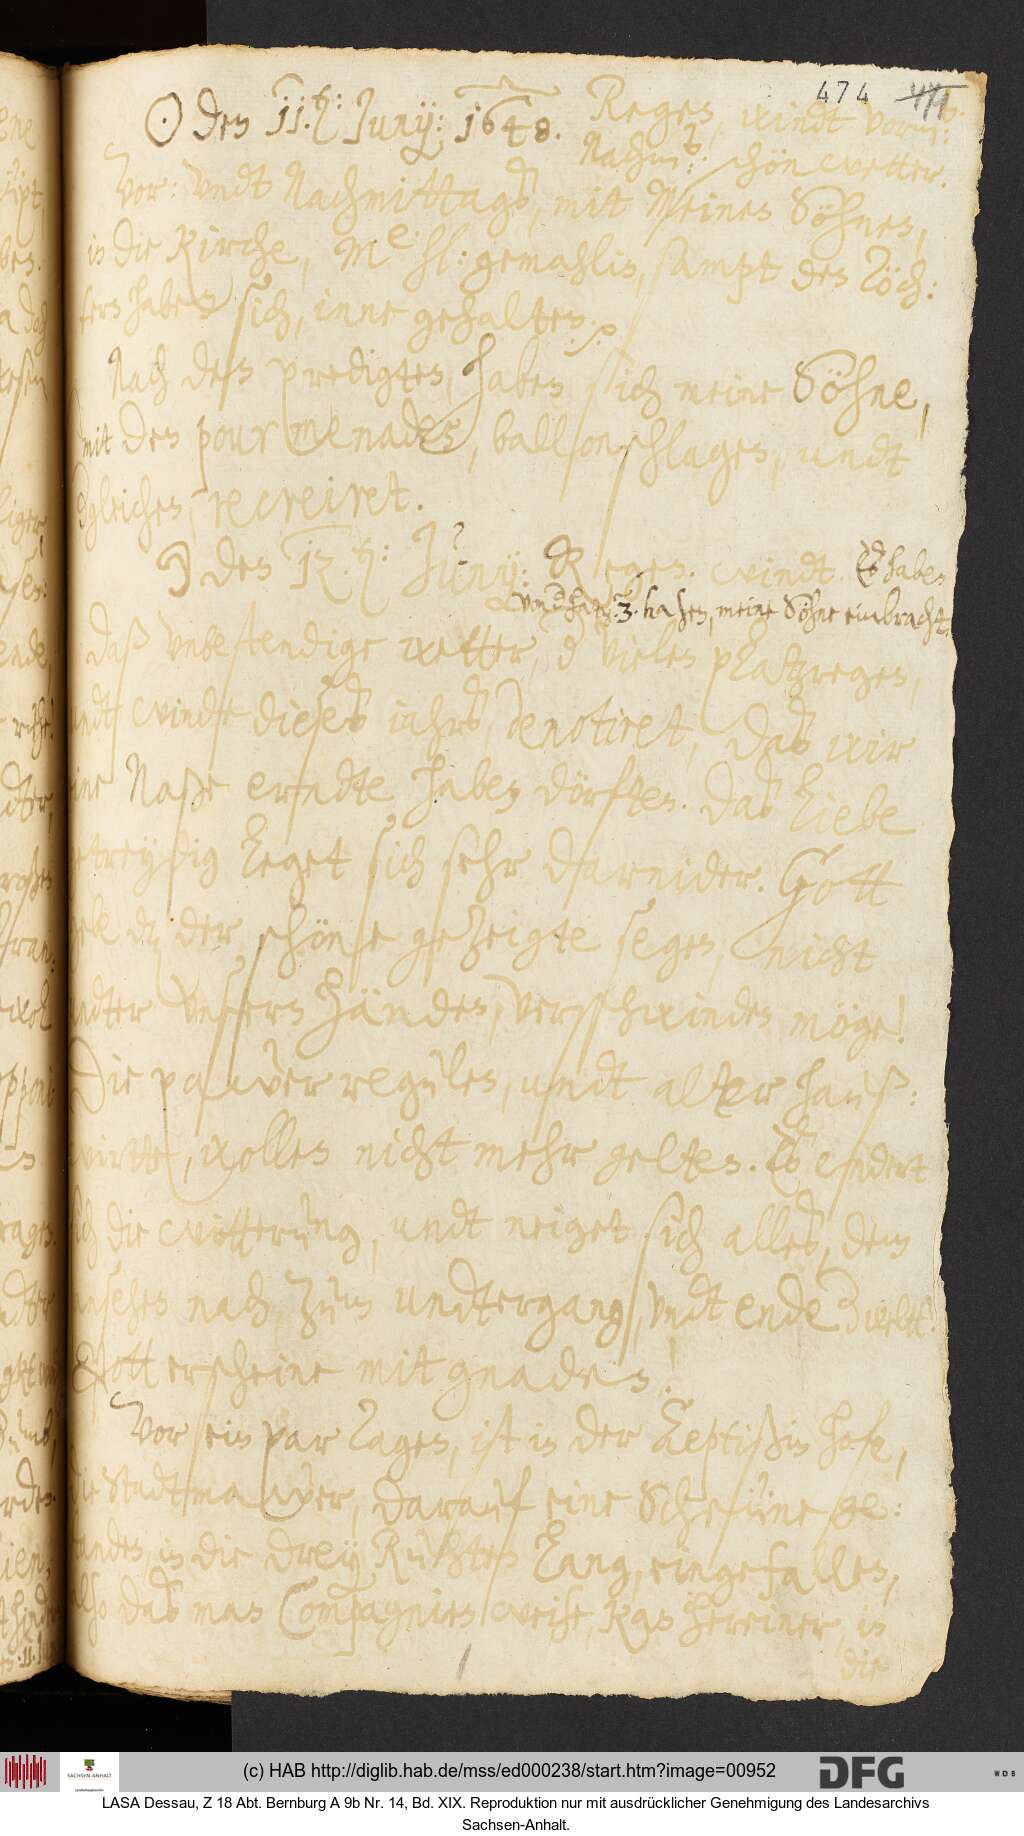 474
☉ den 11.ten: Junij: 1648. Regen, windt vorm:
Nachmt: schön wetter.
Vor: vndt Nachmittags, mit Meinen Söhnen,
in die Kirche, Me. hl: gemahlin, sampt den Töch:
tern haben sich, inne gehalten.
Nach den predigten, haben sich meine Söhne,
mit dem pourmenaden, ballonschlagen, undt
dergleichen, recreiret.
☽ den 12.ten: Junij: Regen. windt. Es haben
3. hasen, meine Söhne einbracht.
Daß vnbestendige wetter, vielen platzregen,
undt winde dieses iahrs, denotiret, das wir
eine Naße erndte haben dörften. Das liebe
getreydig leget sich sehr darnider. Gott
gebe das der schönste gezeigte segen, nicht
undter vnsern händen, verschwinden möge!
Die pawerregulen, undt alter hauß:
wirtte, wollen nicht mehr gelten. Es endert
sich die witterung, undt neiget sich alles, dem
ansehen nach zum undtergang, vndt ende der welt!
Gott erscheine mit gnaden!
Vor ein par tagen, ist in der Äeptißin hofe,
die Stadtmawer, darauf eine Scheüne ge:
standen, in die drey Ruhten lang, eingefallen,
also das man Compagnien weise, kan hereiner, in
die
(c) HAB http://diglib.hab.de/mss/ed000238/start.htm?image=00952
DFG
WDB
SACHSEN-ANHALT
LASA Dessau, Z 18 Abt. Bernburg A 9b Nr. 14, Bd. XIX. Reproduktion nur mit ausdrücklicher Genehmigung des Landesarchivs
Sachsen-Anhalt.